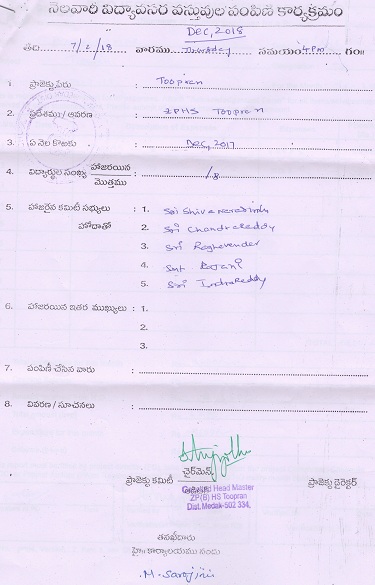 నెలవారి విద్యావసర వస్తువుల పంపిణి కార్యక్రమం
Dec, 2018
తేది 7/2/18 వారము Tuesday సమయం 4 PM గం॥
1. ప్రాజెక్టు పేరు : Toopran
2. ప్రదేశము / ఆవరణ : ZPHS Toopran
3. ఏ నెల కొఱకు : Dec, 2017
4. విద్యార్థుల సంఖ్య హాజరయిన : /8
మొత్తము
5. హాజరైన కమిటీ సభ్యులు : 1. Sri Shiva Narasimlu
హోదాతో 2. Sri ChandraReddy
3. Sri Raghavender
4. Smt Rajani
5. Sri IndraReddy
6. హాజరయిన ఇతర ముఖ్యులు : 1.
2.
3.
7. పంపిణీ చేసిన వారు :
8. వివరణ / సూచనలు :
చైర్మెన్
ప్రాజెక్టు కమిటీ ప్రాజెక్టు డైరెక్టర్
Head Master
ZP(B) HS Toopran
Dist. Medak-502 334.
తనఖీదారు
హై॥ కార్యాలయము నందు
M. Sarojini